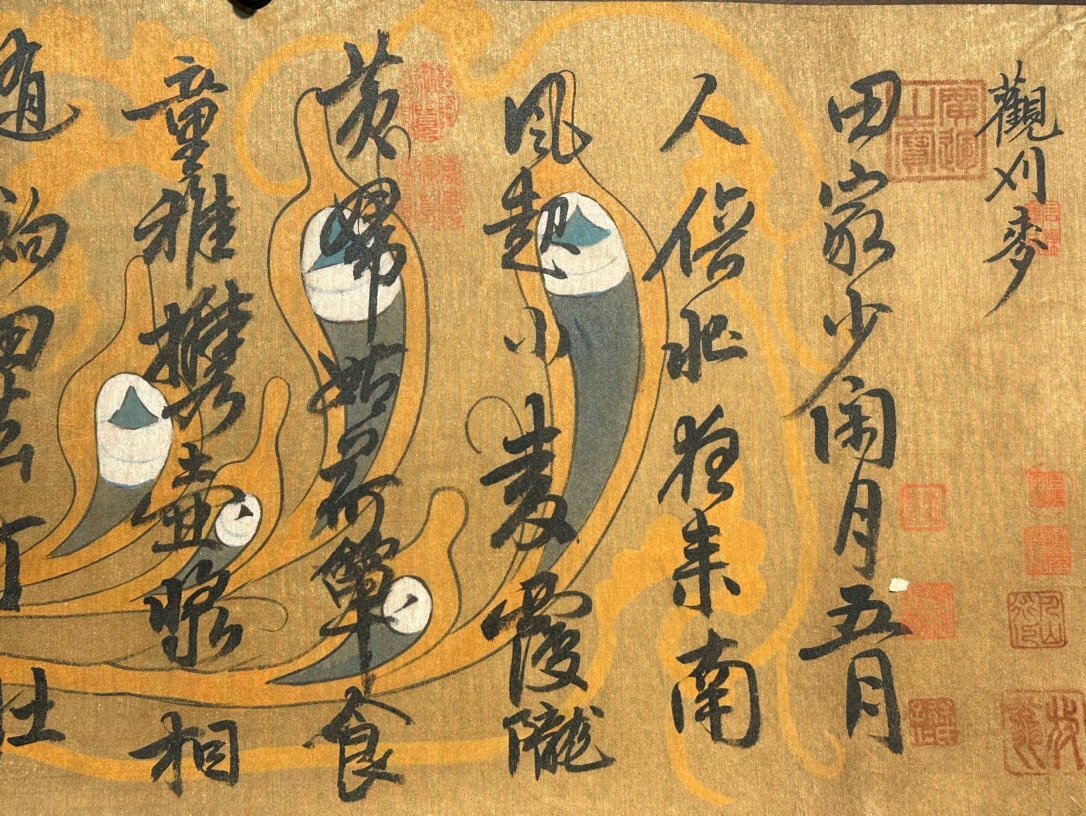 觀刈麥
田家少閑月五月
人倍忙夜来南
風起小麦覆隴
黄婦姑荷簞食
童稚携壺漿相
随餉田去丁壮